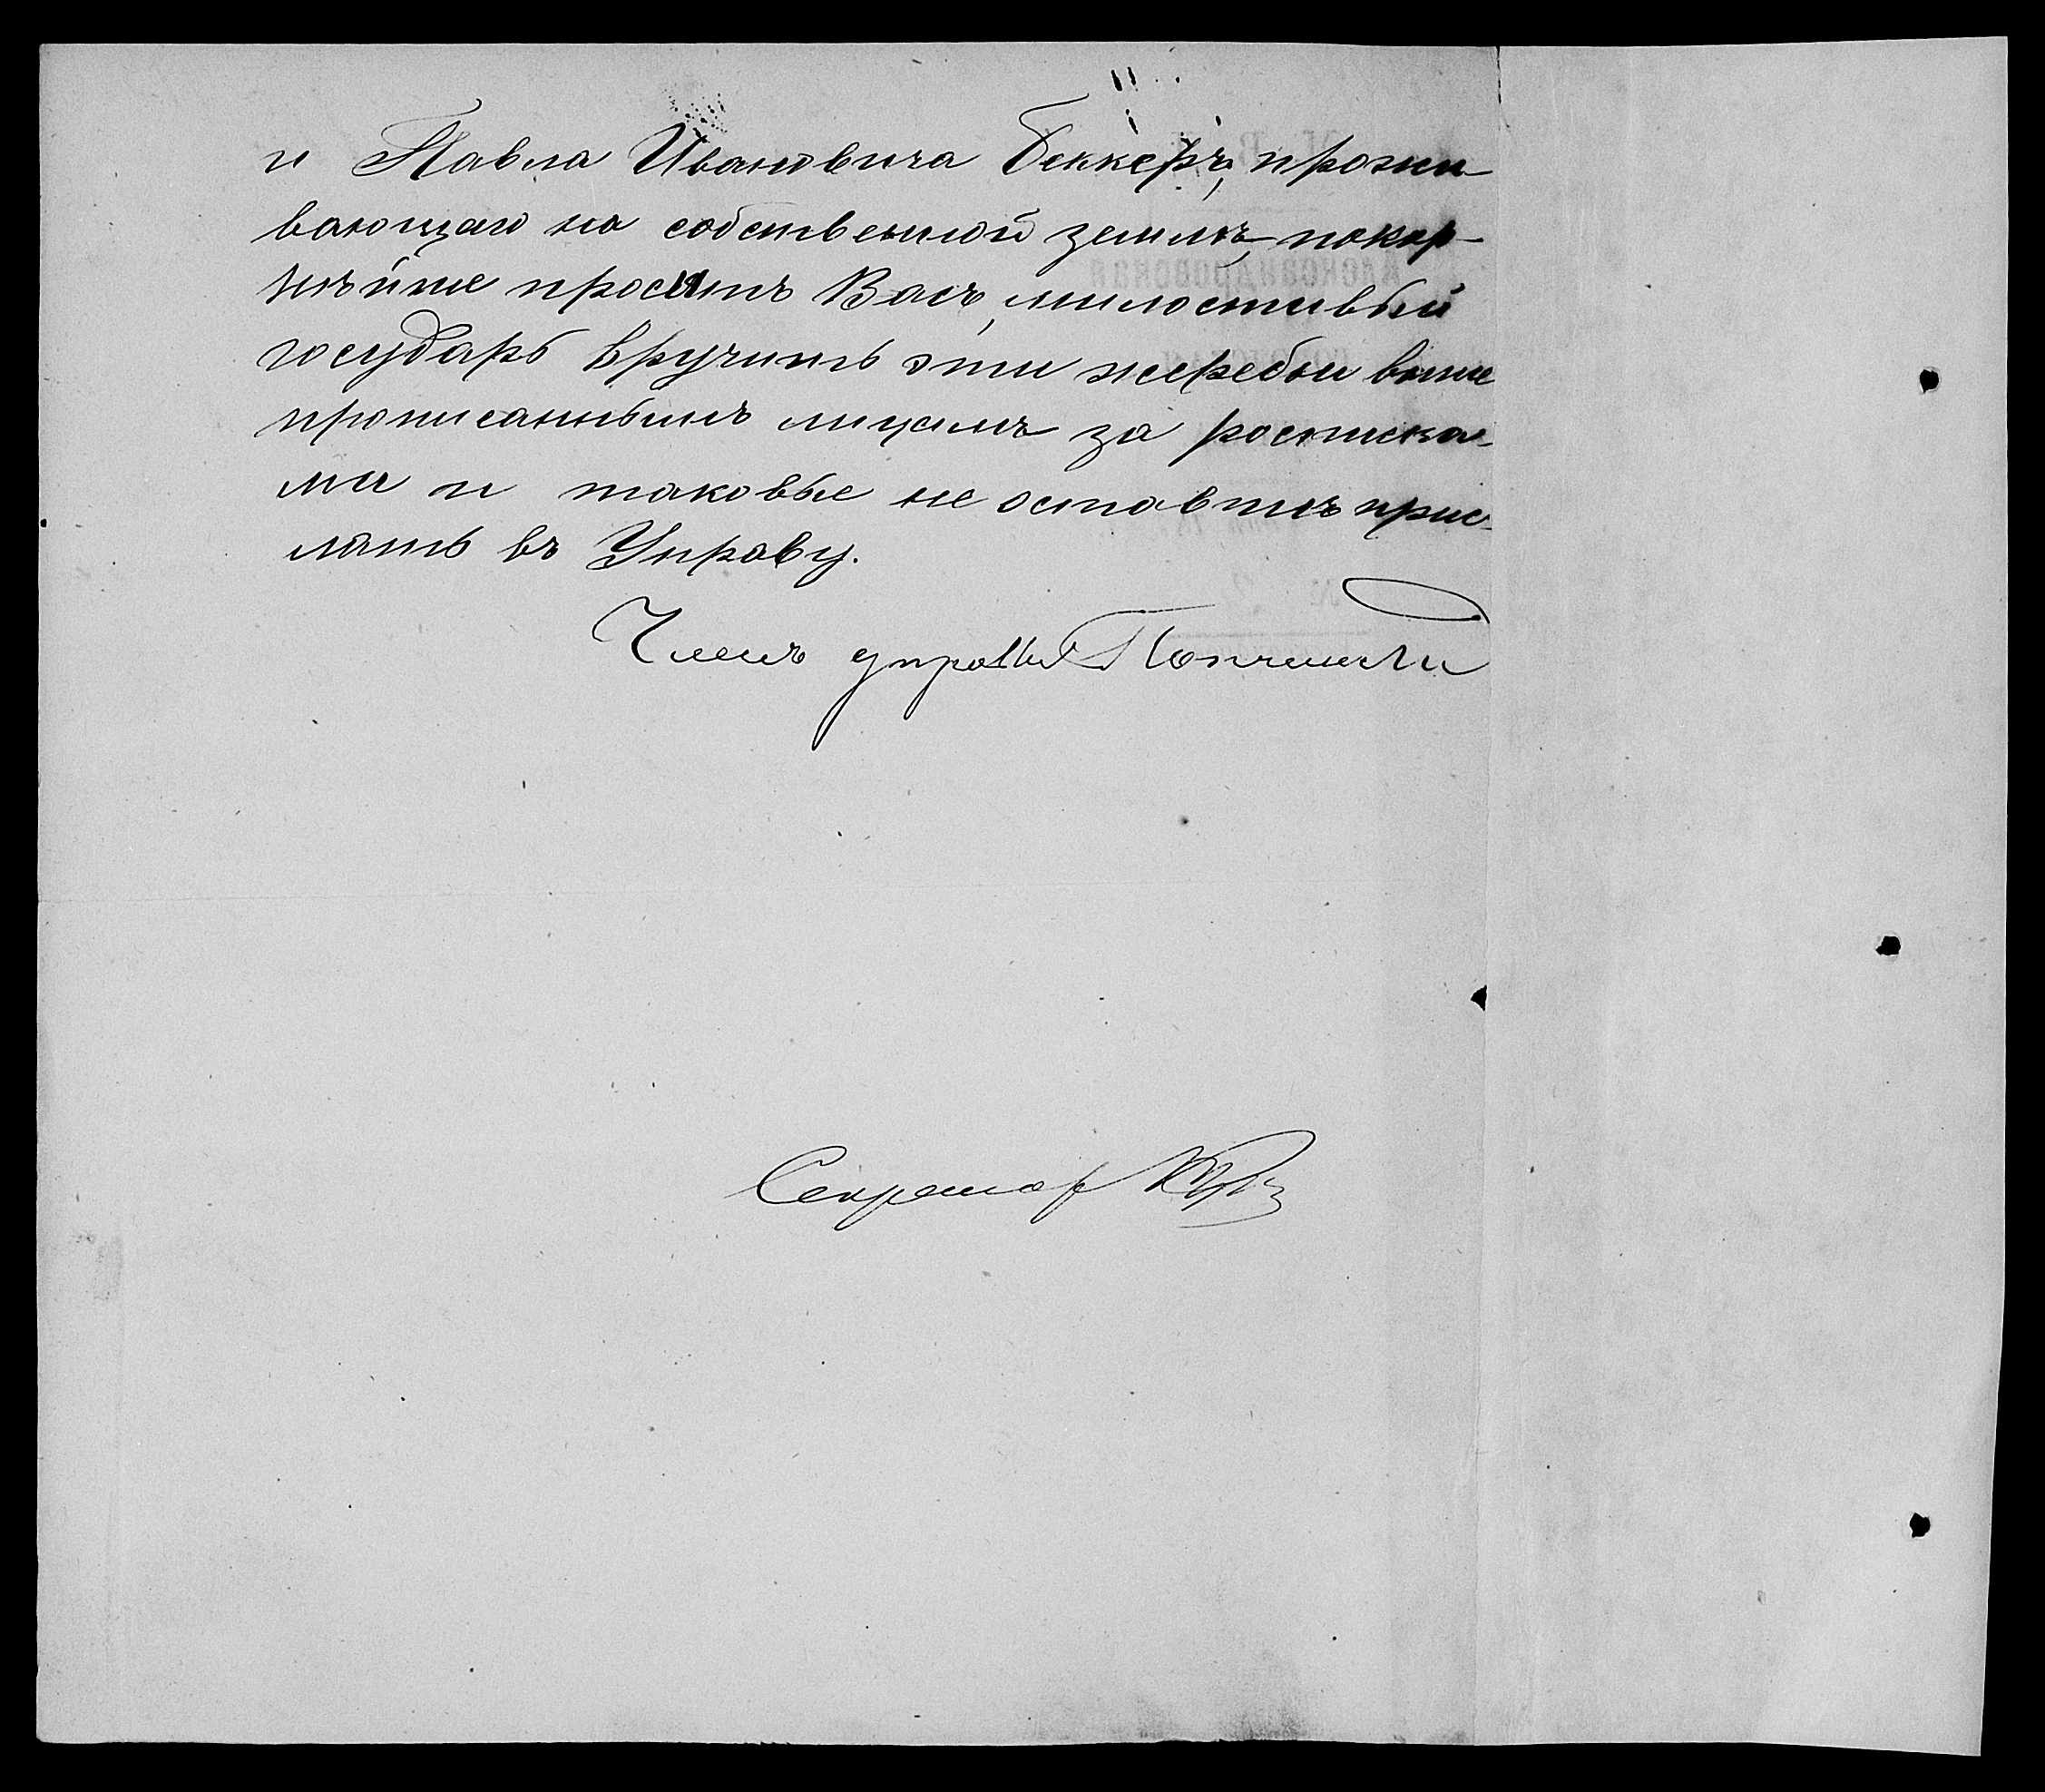 и Павла Ивановича Беккеръ, прожи-
вающаго на собственной землѣ, покор-
нѣйше проситъ Васъ, милостивый
государь вручить эти жеребьи выше
прописаннымъ лицамъ за росписка-
ми и таковые не оставить прис-
лать въ Управу.
Членъ управы
Секретарь